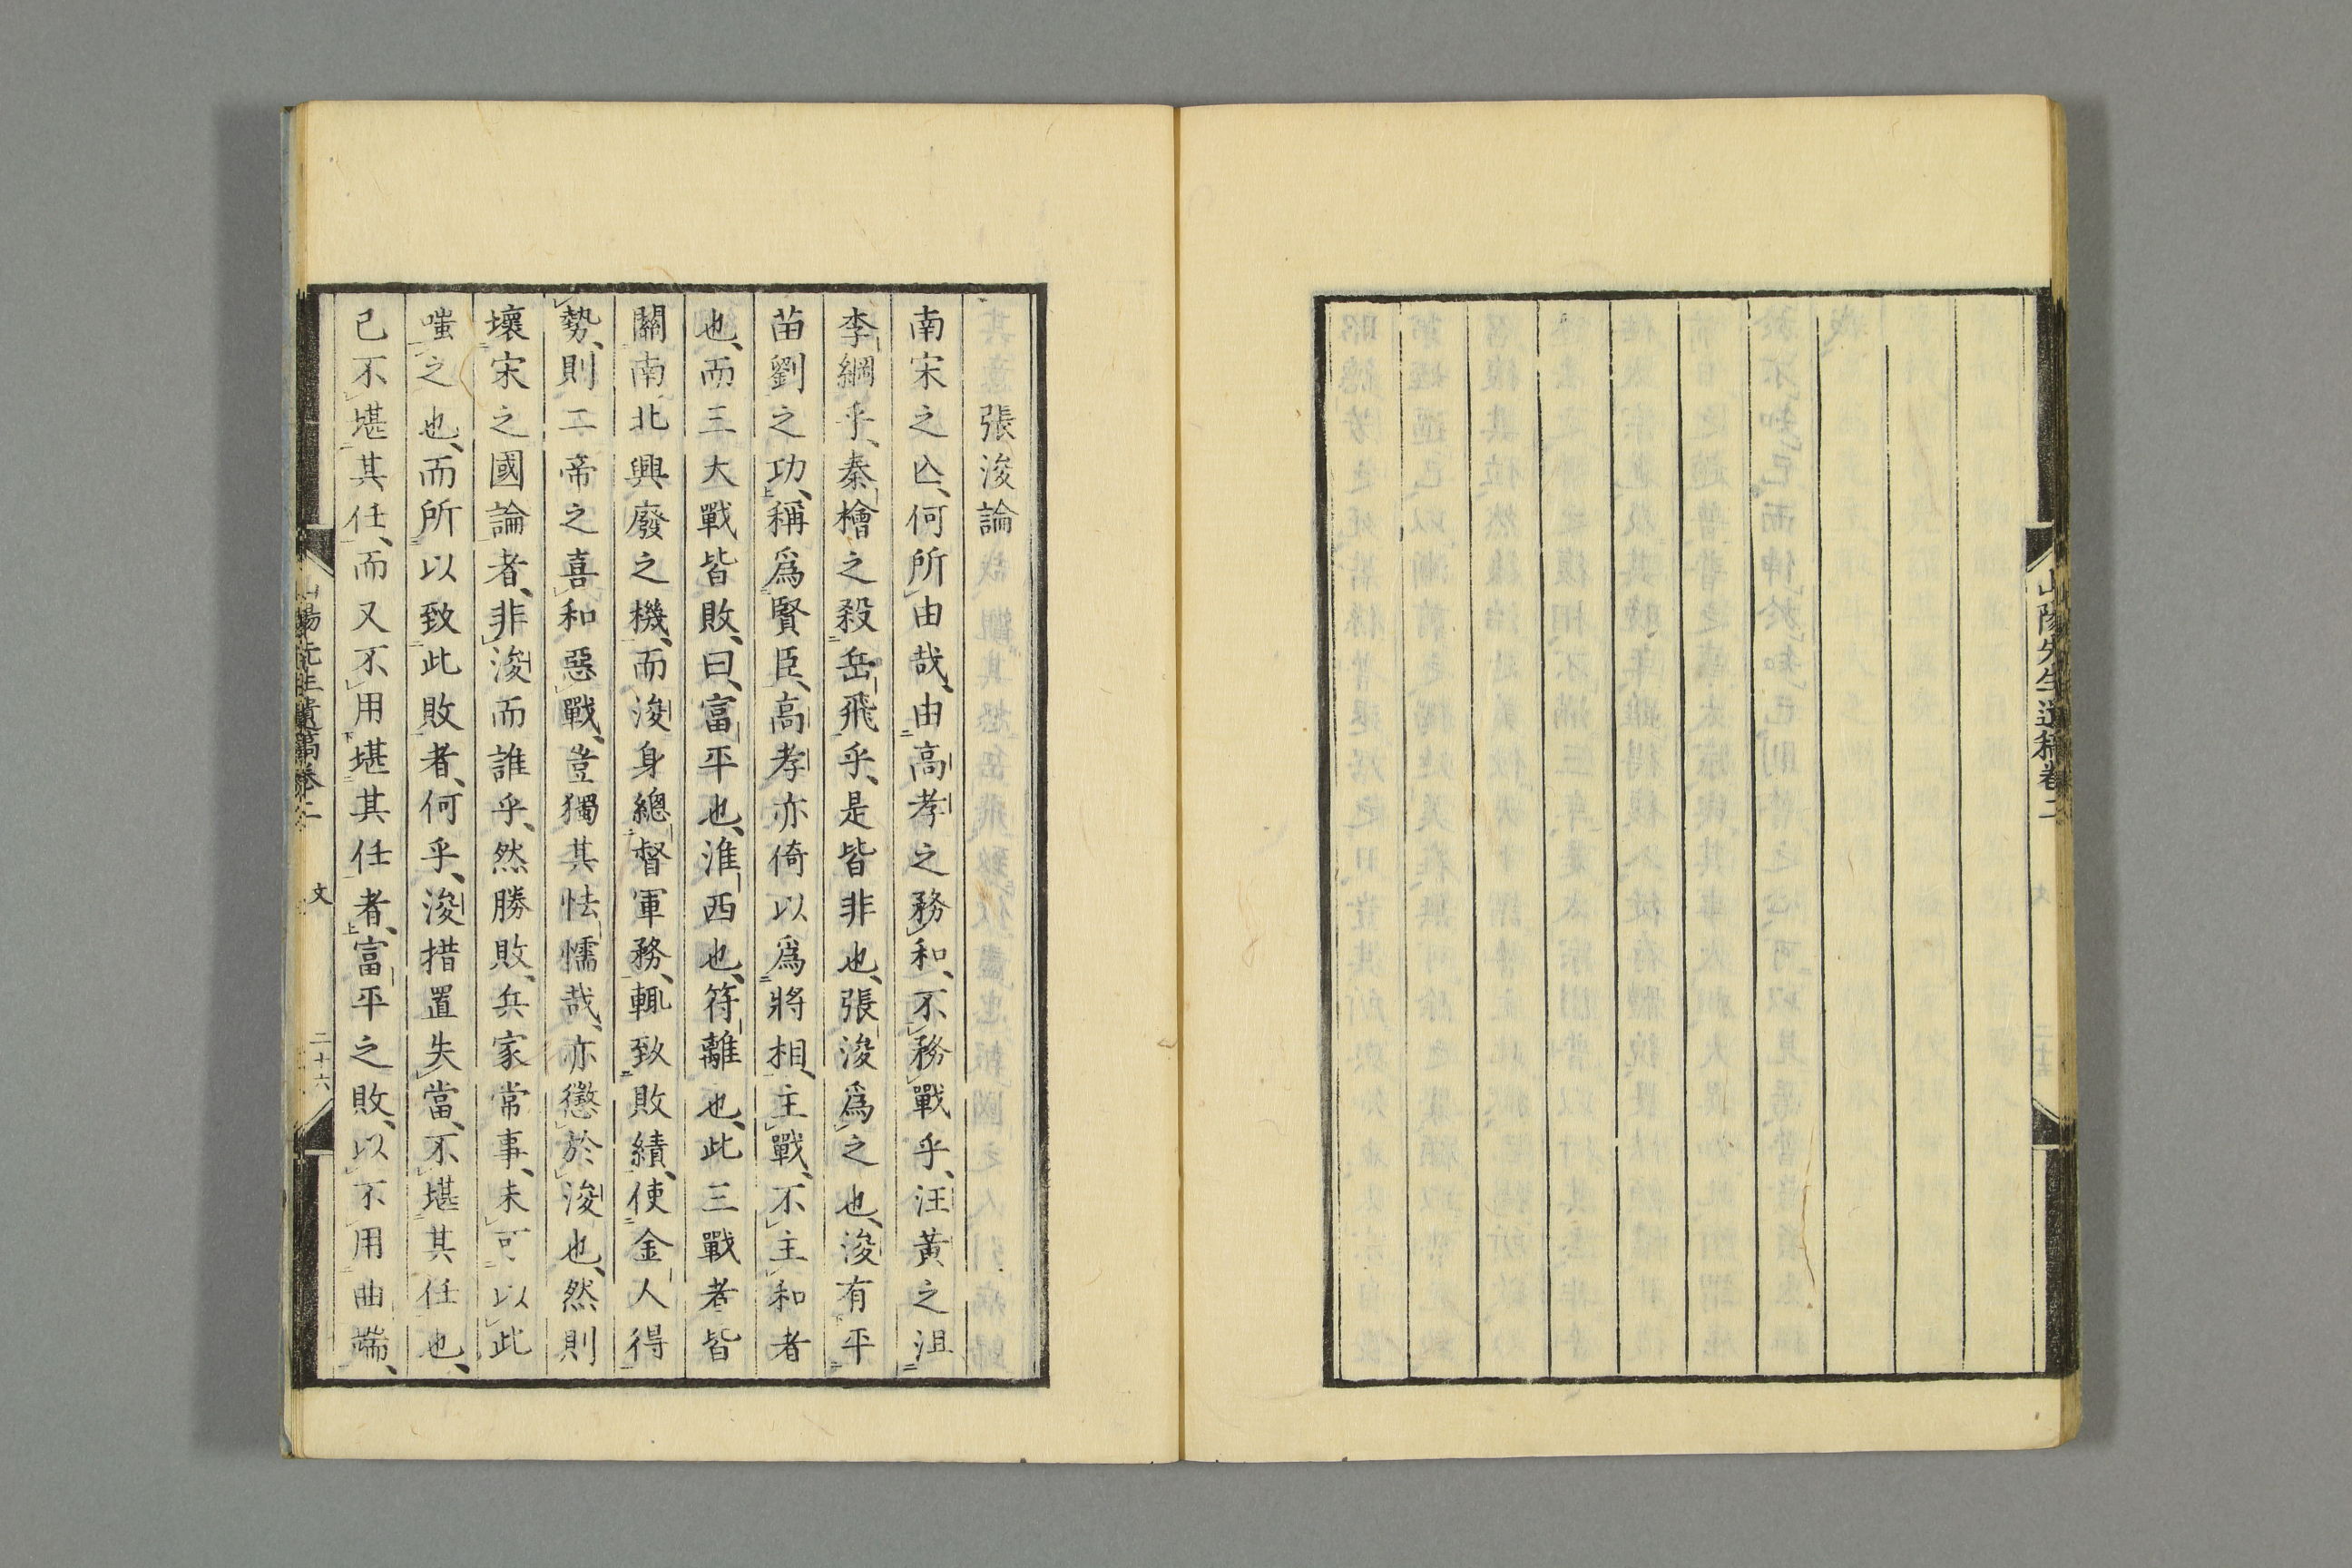 山陽先生遺稿卷二
張浚論
南宋之亾、何所由哉、由高孝之務和、不務戰乎、汪黃之沮
李綱乎、秦檜之殺岳飛乎、是皆非也、張浚爲之也、浚有平
苗劉之功、稱爲賢臣、高孝亦倚以爲將相、主戰、不主和者
也、而三大戰皆敗、曰、富平也、淮西也、符離也、此三戰者皆
關南北興廢之機、而浚身總督軍務、輒致敗績、使金人得
勢、則二帝之喜和惡戰、豈獨其怯懦哉、亦懲於浚也、然則
壞宋之國論者、非浚而誰乎、然勝敗、兵家常事、未可以此
嗤之也、而所以致此敗者、何乎、浚措置失當、不堪其任也、
己不堪其任、而又不用堪其任者、富平之敗、以不用曲端、
山陽先生遺稿卷二 文 二十六